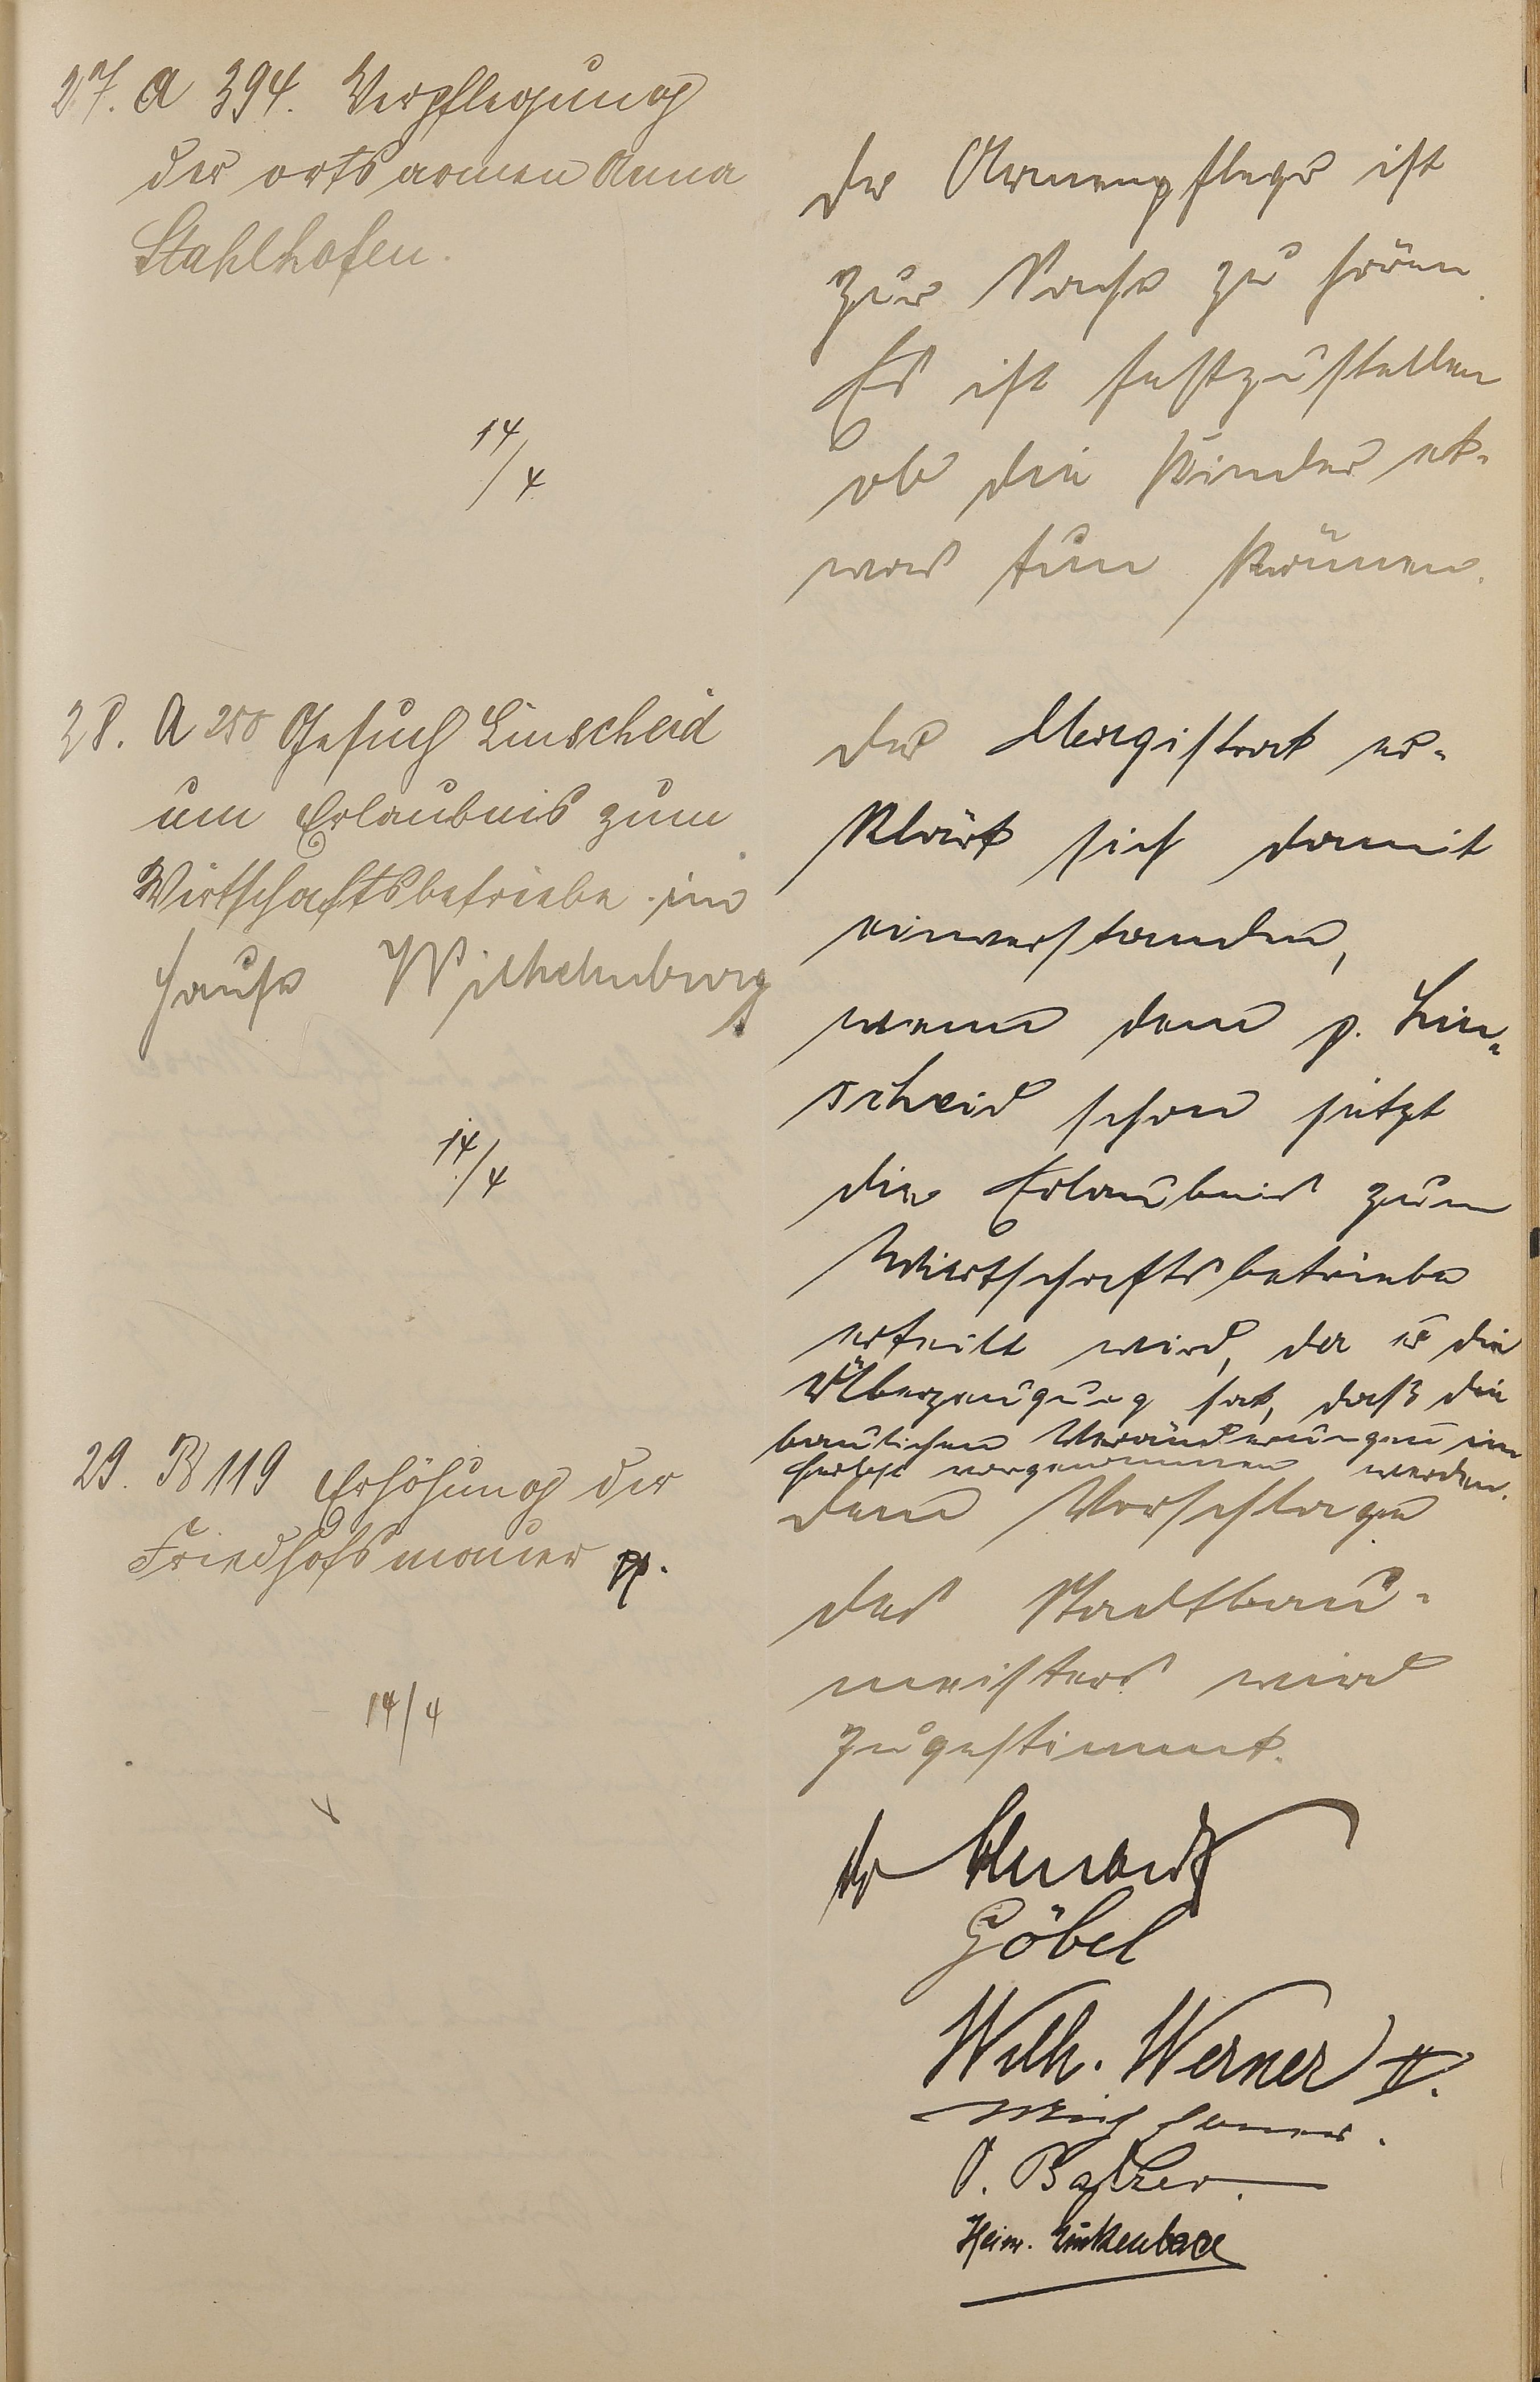 27. A 394. Verpflegung
der ortsarmen Anna
Stahlhofen.
14/4
Die Armenpflege ist
zur Sache zu hören.
Es ist festzustellen
ob die Kinder et-
was tun können.
28. A 250 Gesuch Linscheid
um Erlaubnis zum
Wirtschaftsbetriebe im
Hause Wilhelmburg
14/4
Der Magistrat er-
klärt sich damit
einverstanden,
wenn dem p. Lin-
scheid schon jetzt
die Erlaubnis zum
Wirtschaftsbetriebe
erteilt wird, da er die
Überzeugung hat, daß die
baulichen Veränderungen im
Herbst vorgenommen werden.
29. B 119 Erhöhung der
Friedhofsmauer pp.
14/4
Dem Vorschlage
des Stadtbau-
meisters wird
zugestimmt.
Göbel
Wilh. Werner V.
O. Balzer.
Heinr.